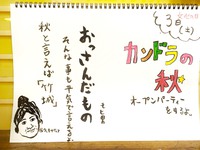 3日(土)
カンドラの
秋
オープンパーティー
をするよ。
おっさんだもの
みんな事も平気で言えるよ。
秋と言えば「竹城」